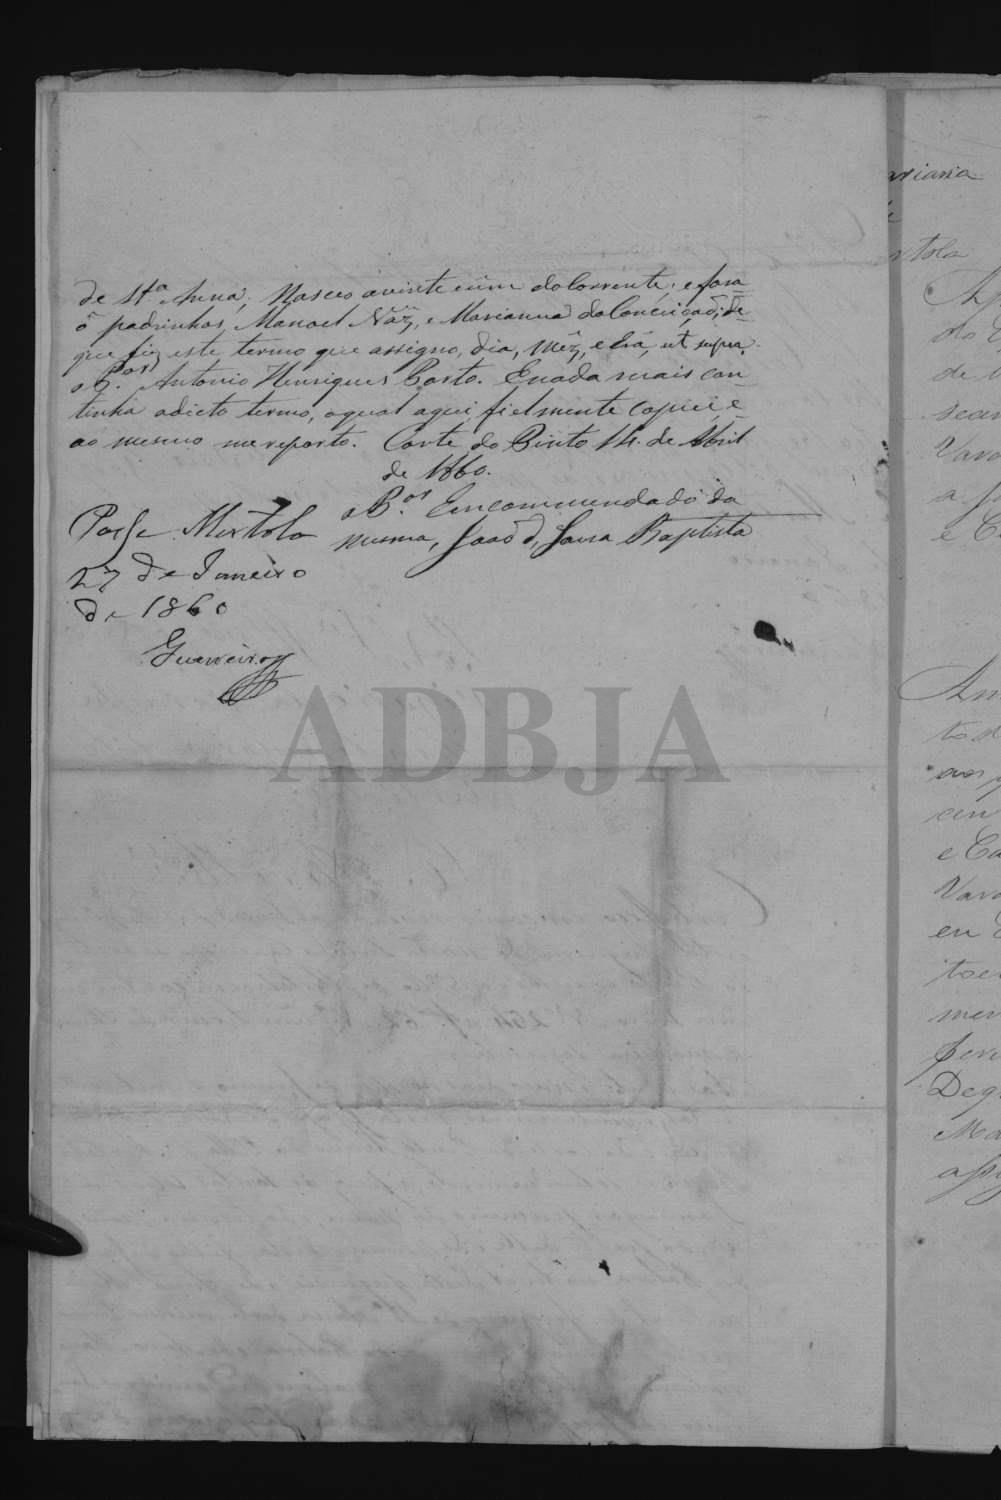 de Sta Anna, Nasceo a vinte e úm do Corrente, e fora
õ padrinhos, Manoel e Marianna da Conceição, de
que fiz este termo que assigno, dia, Mêz, e Erá, ut supra.
o P.or Antonio Henriques Corto. E nada mais con-
tinha o dicto termo, o qual aqui fielmente copiei, e
ao mesmo me reporto. Corte do Pinto 14. de Abril
de 1860.
o P.or Encommendado da
mesma, João de Baptista
Passe Mertola
27 de Janeiro
de 1860
Guerreiro
ADBJA
ariana
rtola
do
de
Vara
a
e C
An
to
e Ca
Vara
en
men
Deg
Ma